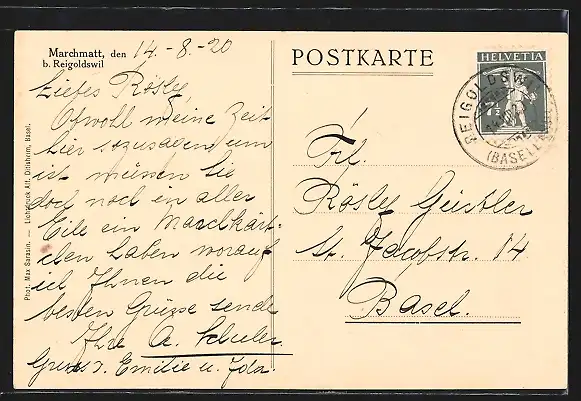 Marchmatt, den 14.-8.-20
b. Reigoldswil
Liebes Rösly
Obwohl meine Zeit
hier sozusagen um
ist müssen Sie
doch noch in aller
Eile ein Marchkärt-
chen haben worauf
ich Ihnen die
besten Grüsse sende
Ihre A. Schuler
Gruss v. Emilie u. Ida
Phot. Max Sarasin. — Lichtdruck Alf. Ditisheim, Basel.
POSTKARTE
HELVETIA
7½
REIGOLDSWIL
(BASELLAND)
Frl.
Rösly Geistler
St. Jacobstr. 14
Basel.